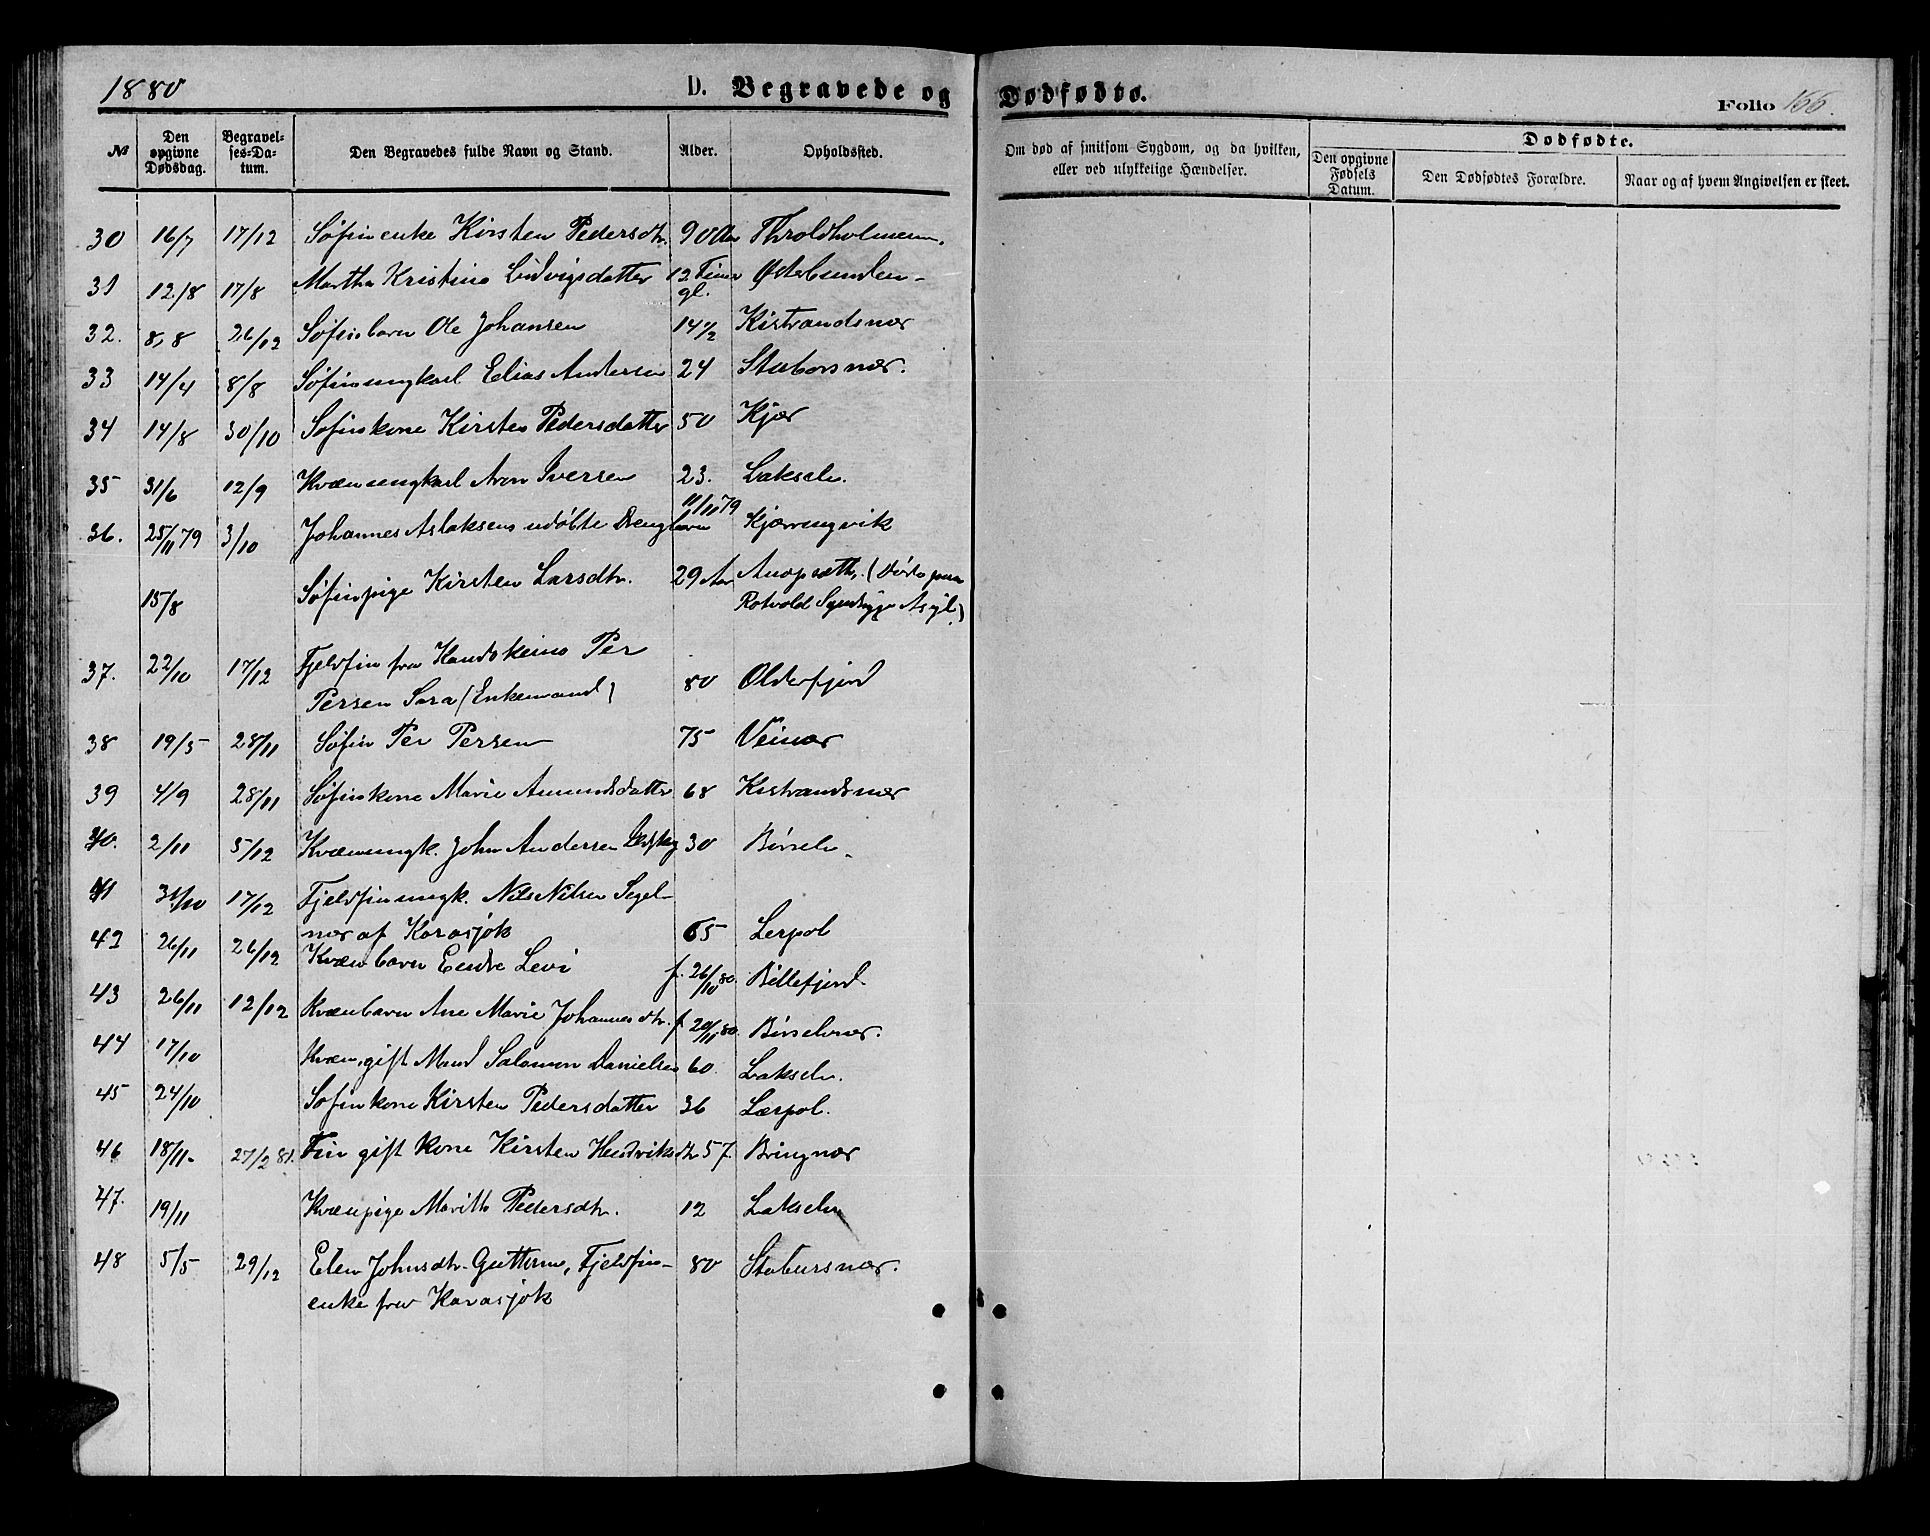 1880
D. Begravede og Dødfødte.
Folio 166.
№
Den opgivne Dødsdag.
Begravelses-Datum.
Den Begravedes fulde Navn og Stand.
Alder.
Opholdssted.
Om død af smitsom Sygdom, og da hvilken, eller ved ulykkelige Hændelser.
Dødfødte.
Den opgivne Fødsels Datum.
Den Dødfødtes Forældre.
Naar og af hvem Angivelsen er skeet.
30 16/7 17/12 Søfinenke Kirsten Pedersdtr. 90 Aar Throldholmen.
31 12/8 17/8 Martha Kristine Ludvigsdatter 12 Timer Østerbunden
gl.
32. 8/8 26/12 Søfinbarn Ole Johansen 14 1/2 Kistrandsnær
33 14/4 8/8 Søfinungkarl Elias Andersen 24 Staborsnær.
34 14/8 30/10 Søfinkone Kirsten Pedersdatter 50 Kjær
35 31/6 12/9 Kvænungkarl Aron Iversen 23. Lakselv.
36. 25/11 79 3/10 Johannes Aslaksens udøbte Drengbarn 11/11 79 Kjærringvik
15/8 Søfinpige Kirsten Larsdtr. 29 Aar (Døde paa
Rotvold Sindsyge Asyl)
37. 22/10 17/12 Fjeldfin fra Kautokeino Per
Persen Sara (Enkemand) 80 Olderfjord
38 19/5 28/11 Søfin Per Persen 75 Veinær
39 4/9 28/11 Søfinkone Marie Amundsdatter 68 Kistrandsnær
40. 2/11 5/12 Kvænungk. John Andersen 30 Børselv.
41 31/10 17/12 Fjeldfinungk. Nils Nilsen Segel-
nær af Karasjok 65 Lerpol
42 26/11 26/12 Kvænbarn Endre Levi f. 26/10 80. Billefjord.
43 26/11 12/12 Kvænbarn Ane Marie Johannesdtr. f. 20/11 80. Børselvnær.
44 17/10 Kvæn, gift Mand Salomon Danielsen 60. Lakselv.
45 24/10 Søfinkone Kirsten Pedersdatter 36 Lærpol.
46 18/11 27/2 81. Fin gift kone Kirsten Hendriksdtr 57. Bringnær
47. 19/11 Kvænpige Marith Pedersdtr. 12 Lakselv
48 5/5 29/12 Elen Johnsdtr. Guttorm, Fjeldfin- 80 Stabursnær.
enke fra Karasjok